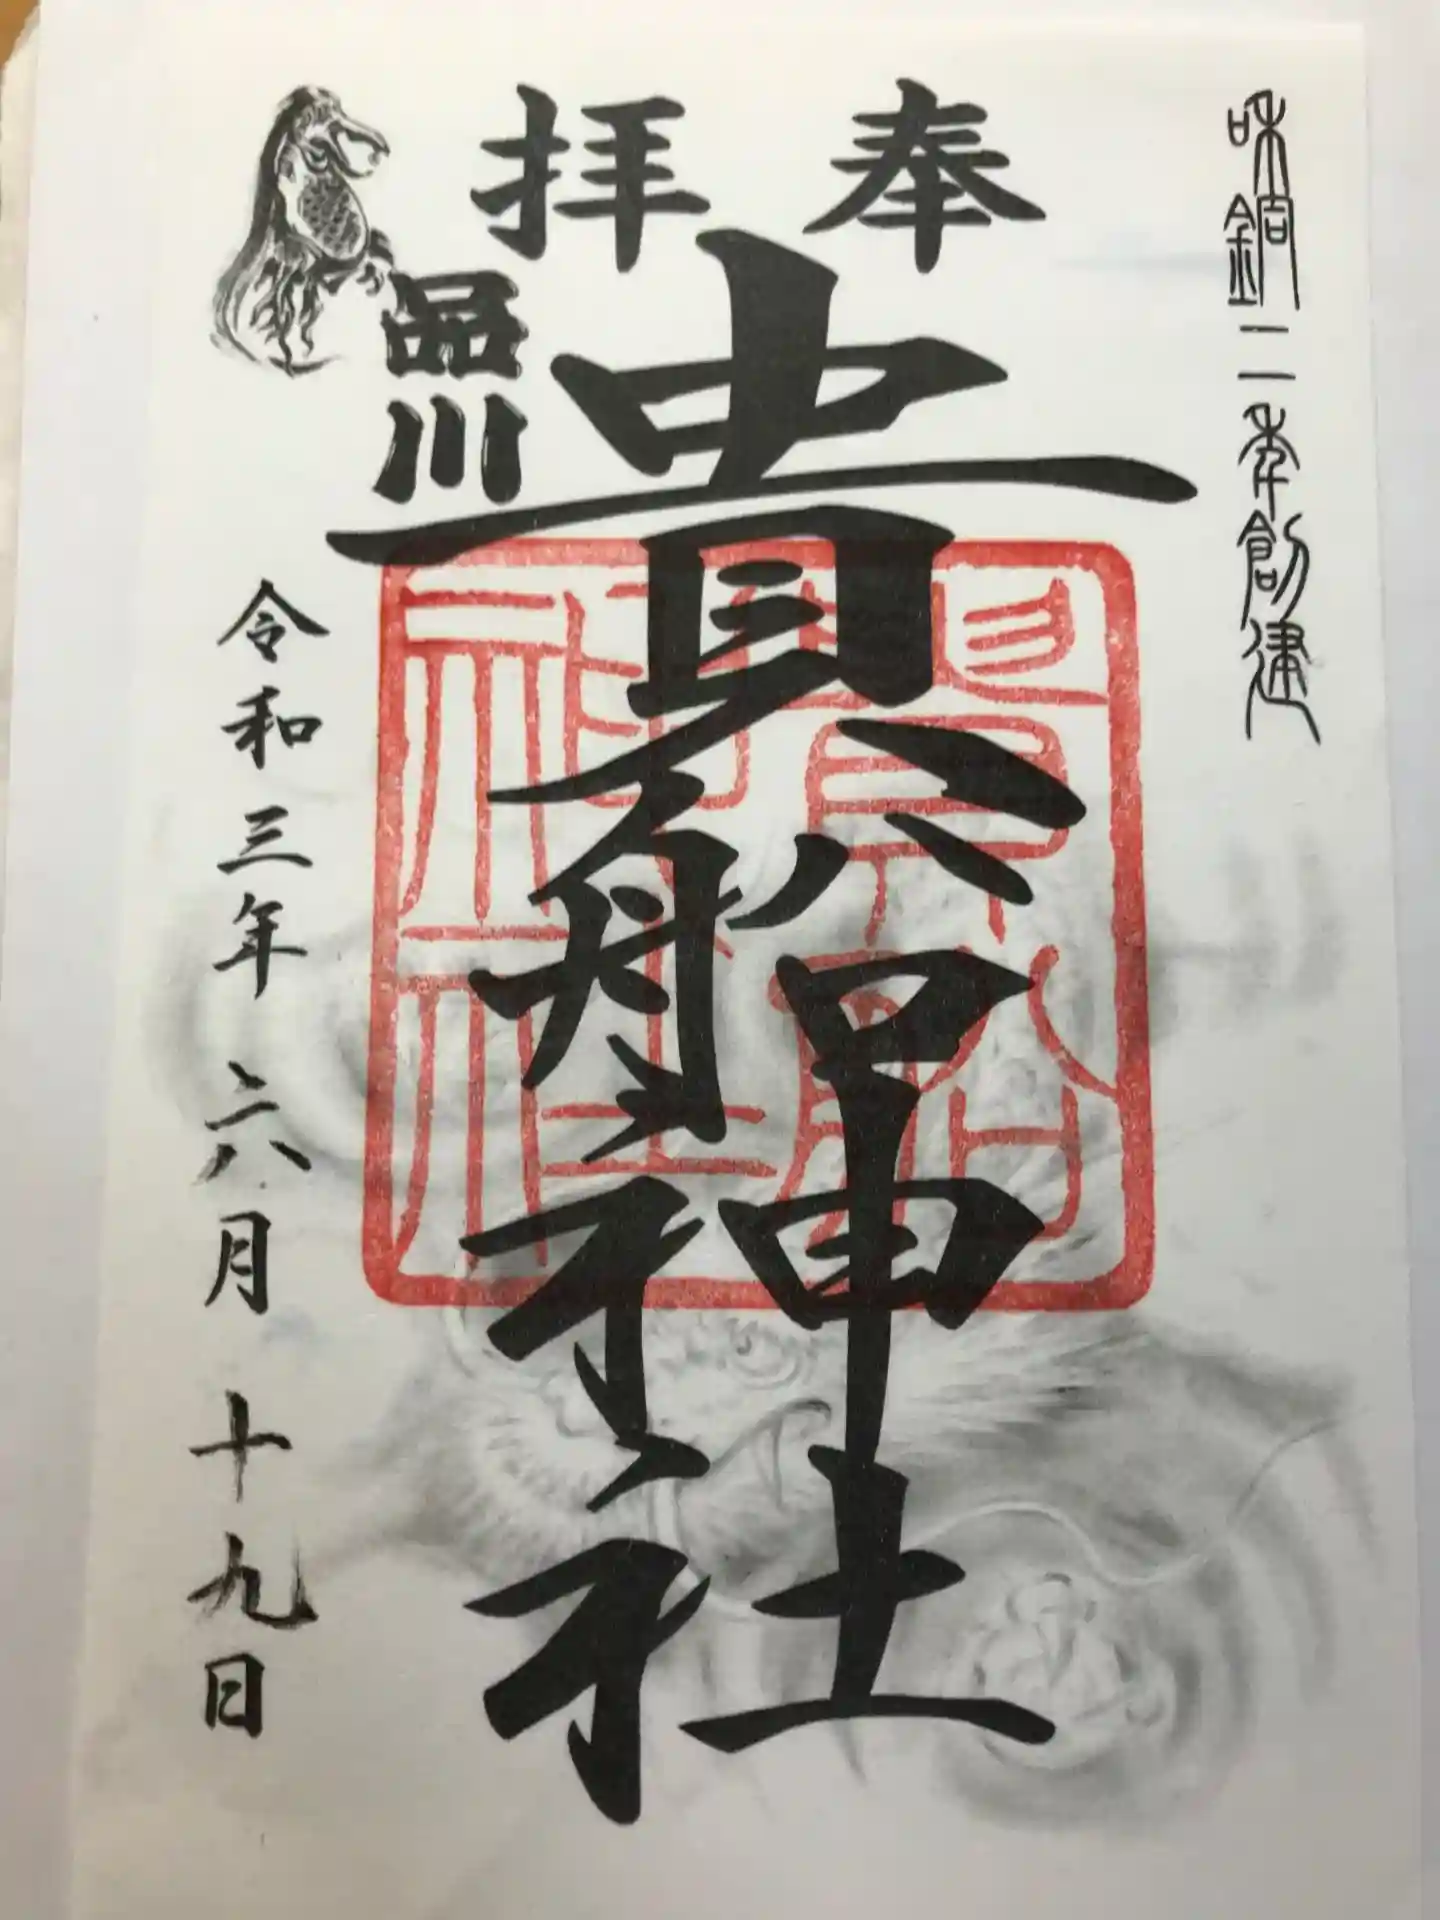 和銅二年創建
奉拝
貴船神社
品川
貴船神社
令和三年六月十九日